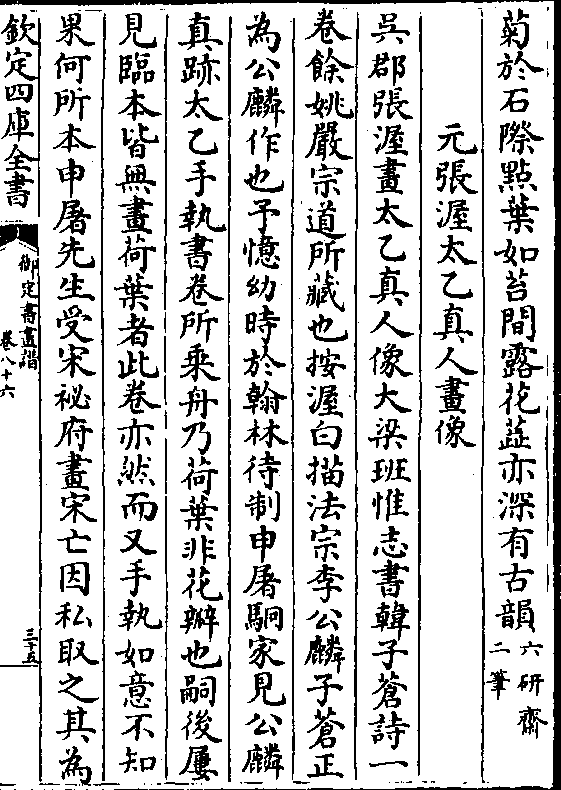 菊於石際點葉如苔間露花蕋亦深有古韻六研齋二筆
元張渥太乙真人畫像
吳郡張渥畫太乙真人像大梁班惟志書韓子蒼詩一
卷餘姚嚴宗道所藏也按渥白描法宗李公麟子蒼正
為公麟作也予憶幼時於翰林待制申屠駉家見公麟
真跡太乙手執書卷所乘舟乃荷葉非花瓣也嗣後屢
見臨本皆無畫荷葉者此卷亦然而又手執如意不知
果何所本申屠先生受宋祕府畫宋亡因私取之其為
欽定四庫全書
御定書畫譜
卷八十六
三十五